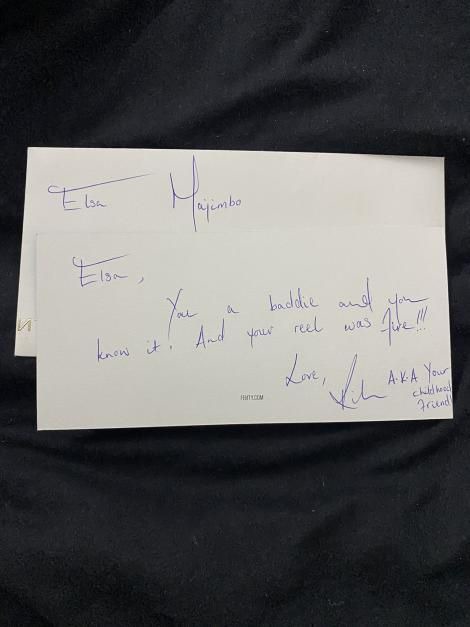 Elsa Majimbo
Elsa,
You a baddie and you
know it. And your reel was fire!!!
Love,
Rih A.K.A Your
childhood
friend
FENTY.COM